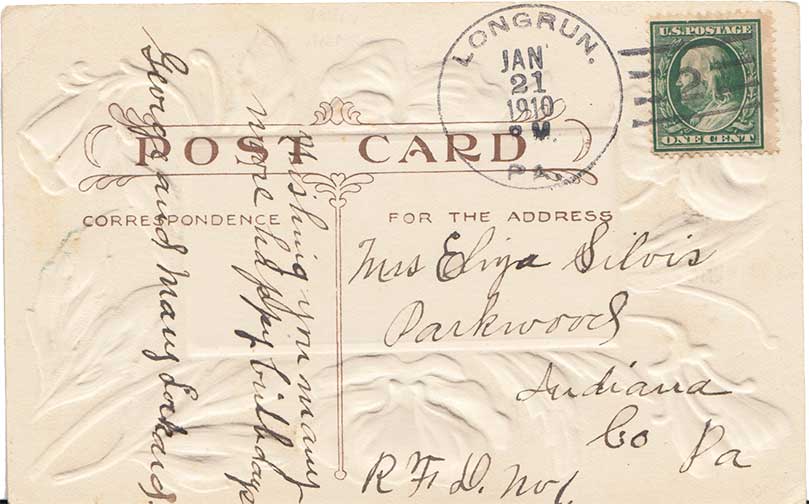 LONGRUN.
JAN
21
1910
PA.
U.S. POSTAGE
2
ONE CENT
POST CARD
CORRESPONDENCE
FOR THE ADDRESS
Wishing you many
more happy birthdays
George and Mary Lockard.
Mrs Eliza Silvis
Parkwood
Indiana
Co Pa
R F D. No 1